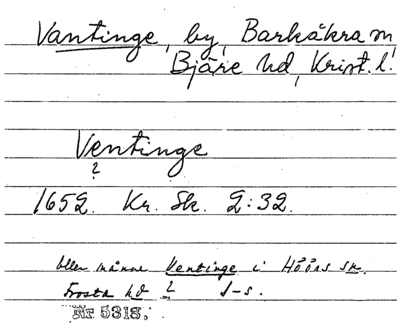 Vantinge, by, Barkåkra sn,
Bjäre hd, Krist. l.
Ventinge
?
1652. Kr. Sk. 2:32.
eller månne Ventinge i Höörs sk.
Frosta hd ? J-s.
Nr 5313.